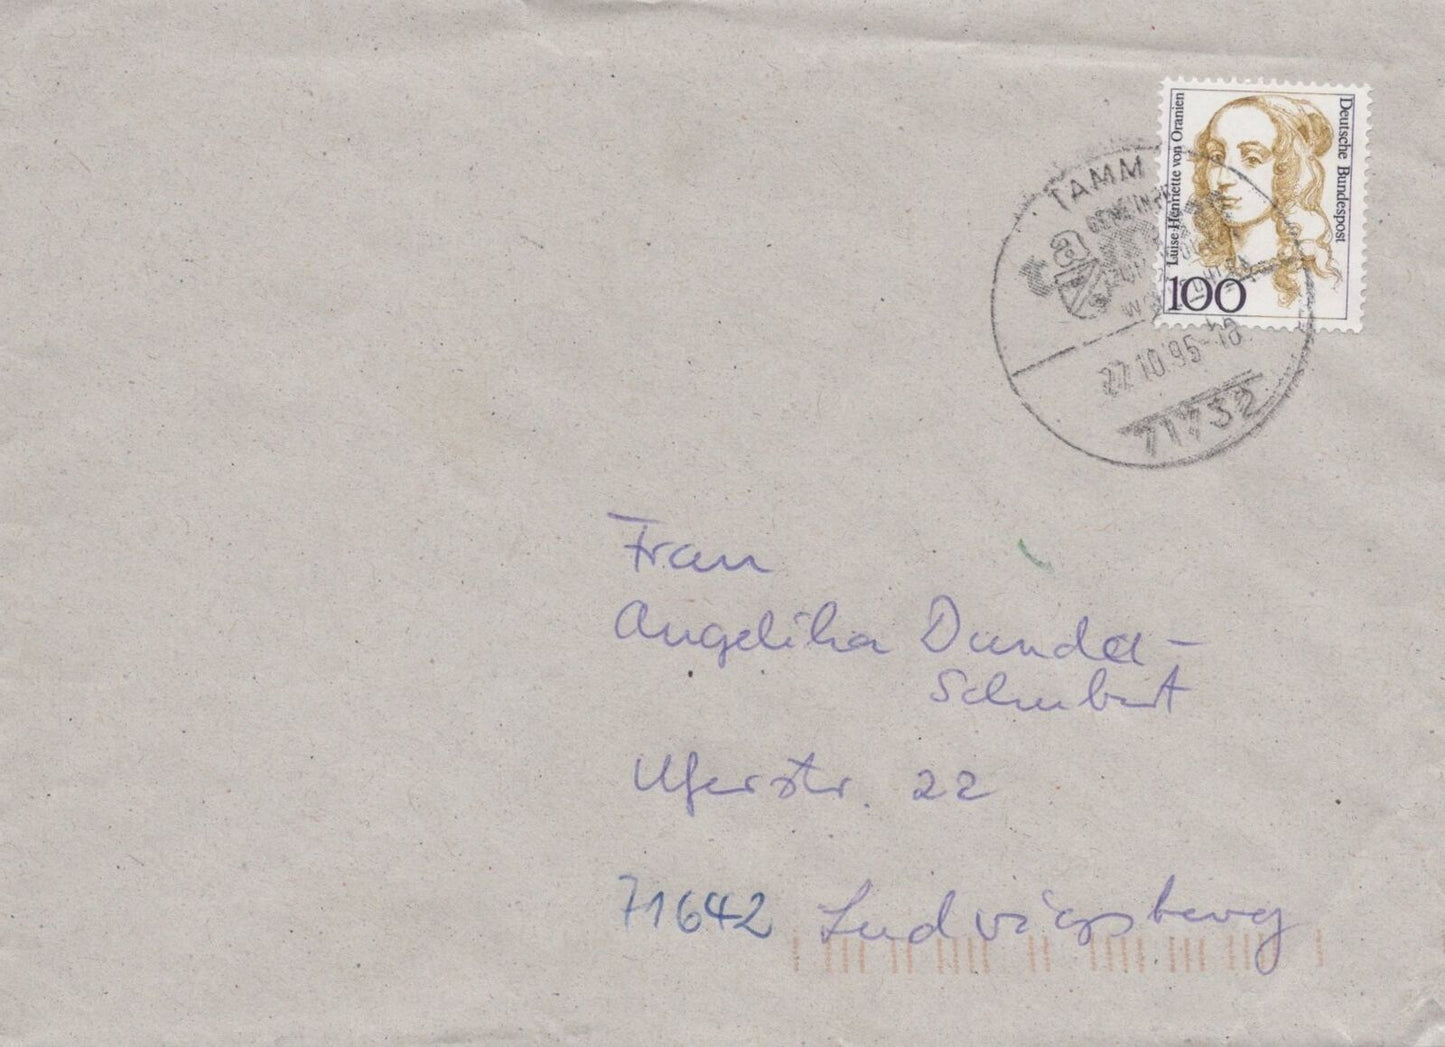 Luise Henriette von Oranien
Deutsche Bundespost
100
TAMM
27.10.95-18
71732
Frau
Angelika Dunda-
Schubert
Uferstr. 22
71642 Ludwigsburg